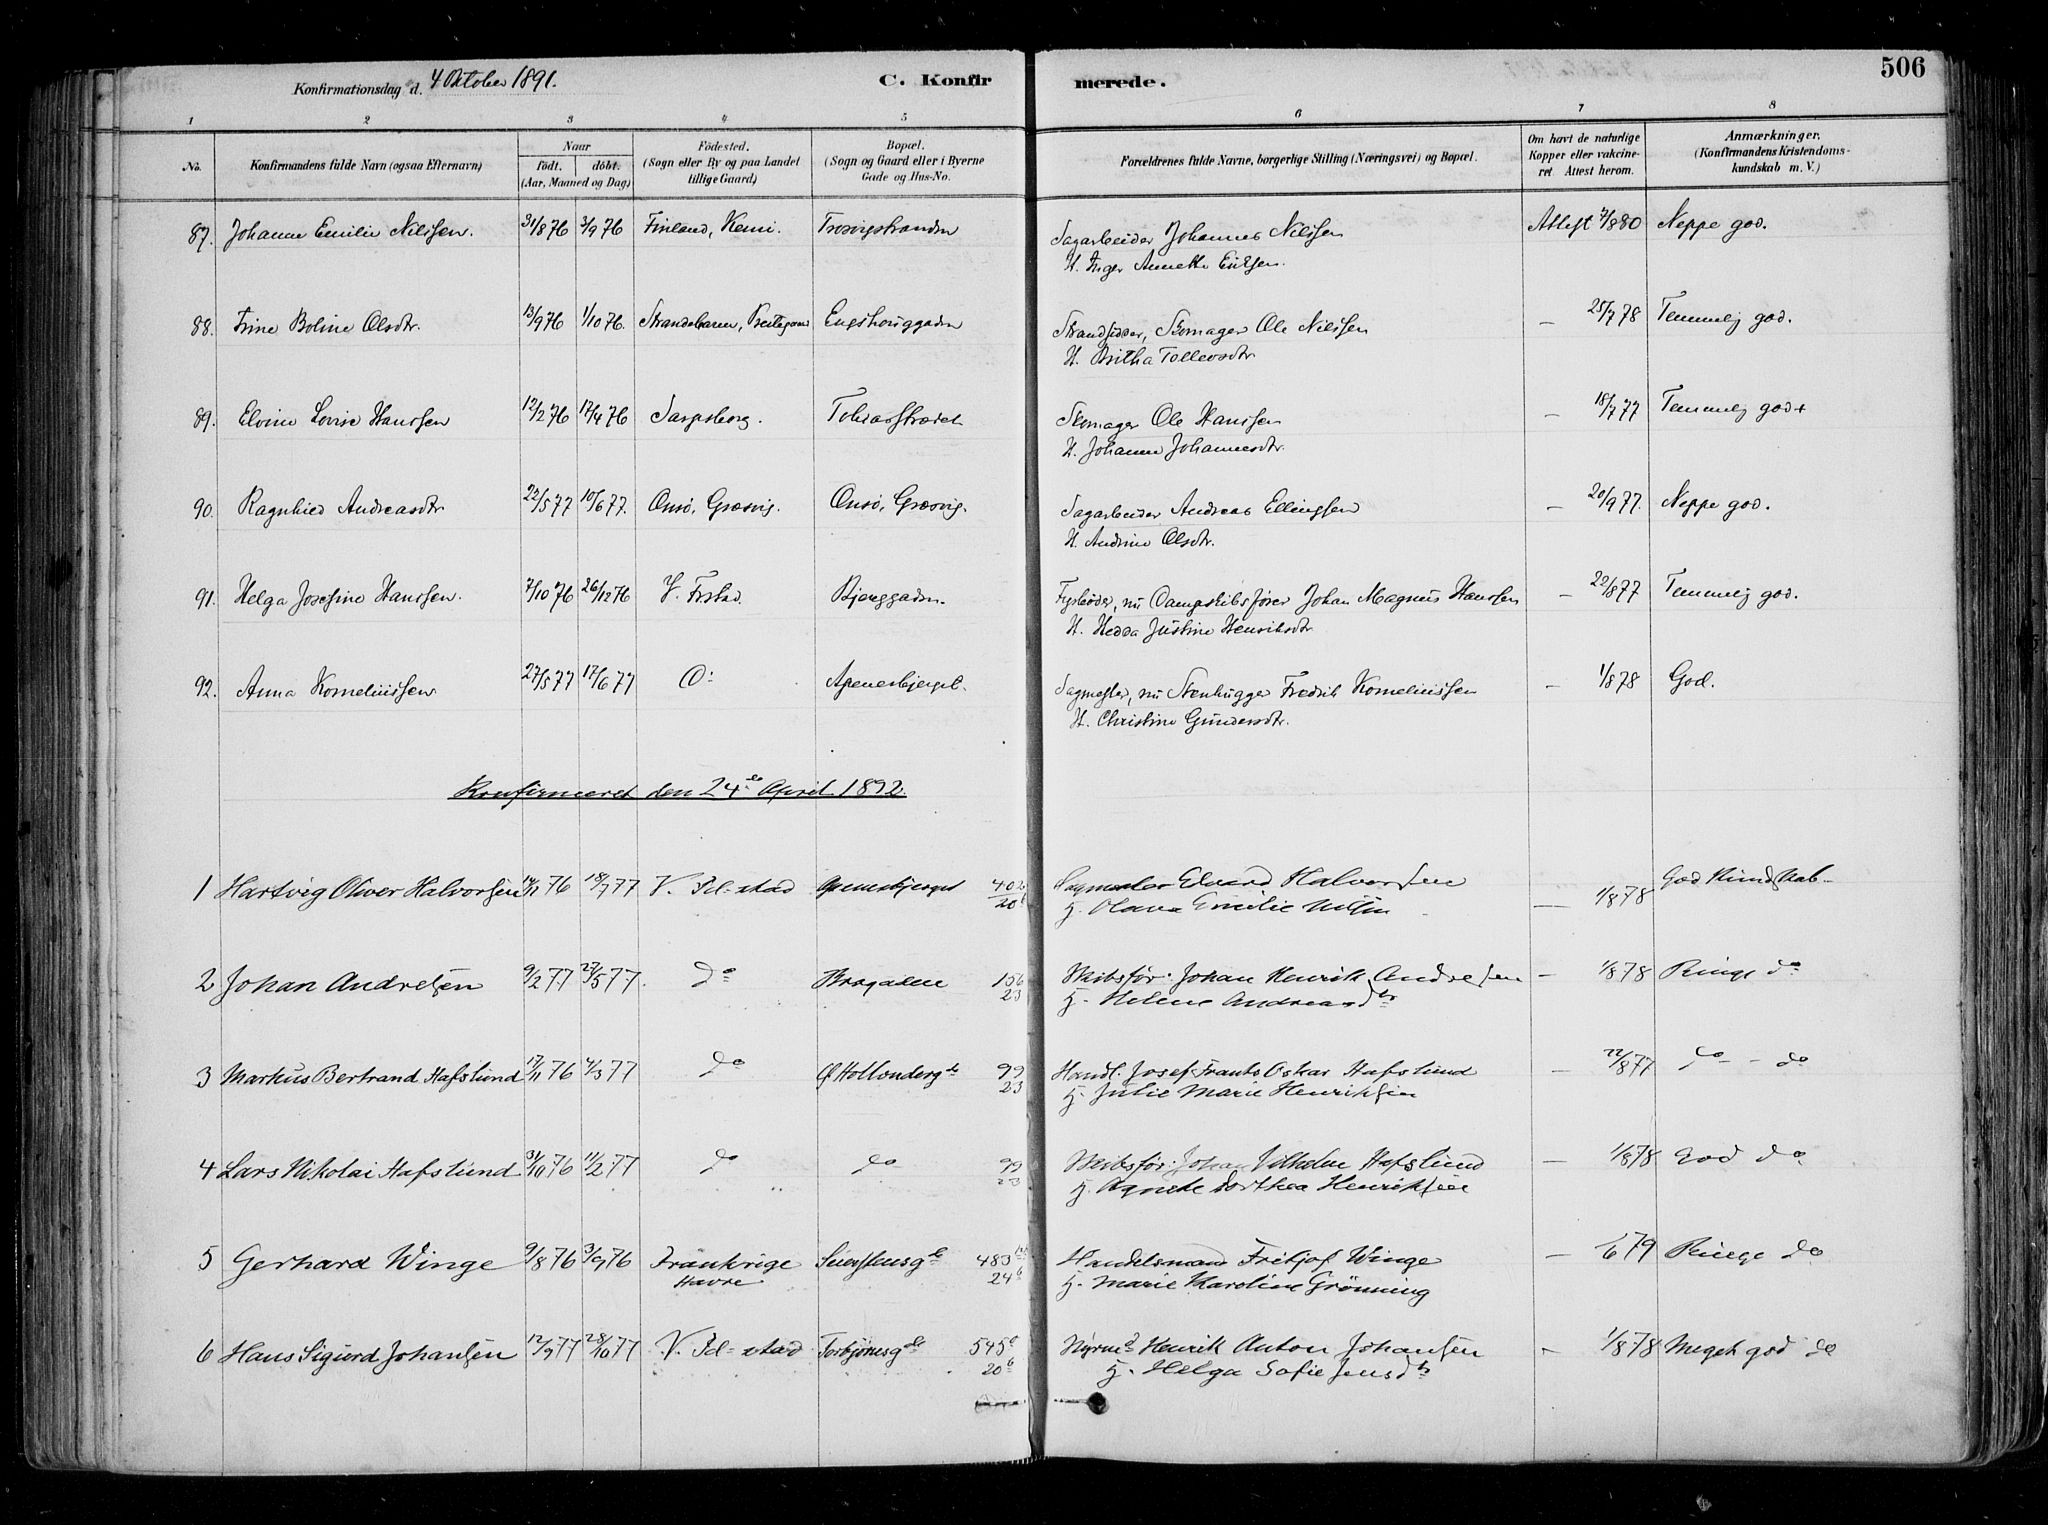 506
Konfirmationsdag d. 4 Oktober 1891.
C. Konfirmerede.
1 2 3 4 5 6 7 8
No.
Konfirmandens fulde Navn (ogsaa Efternavn)
Naar
födt. döbt.
(Aar, Maaned og Dag)
Födested.
(Sogn eller By og paa Landet
tillige Gaard)
Bopæl.
(Sogn og Gaard eller i Byerne
Gade og Hus-No.
Forældrenes fulde Navne, borgerlige Stilling (Næringsvei) og Bopæl.
Om havt de naturlige
Kopper eller vakcine-
ret. Attest herom.
Anmærkninger.
(Konfirmandens Kristendoms-
kundskab m. V.)
87. Johanne Emilie Nilssen. 31/8 76 3/9 76 Finland, Kemi. Trosvigstranden Sagarbeider Johannes Nilssen Attest 7/8 80 Neppe god.
H. Inger Annette
88. Trine Boline Olsdtr. 13/9 76 1/10 76. Strandebarm, Engshauggaden Strandsidder, Skomager Ole Nilssen — 25/7 78 Temmelig god.
H. Britha Tollevsdtr
89. Elvine Lovise Hanssen 12/2 76 17/4 76 Sarpsborg. Tobiasstrædet Skomager Ole Hanssen — 18/7 77 Temmelig god
H. Johanne Johannesdtr.
90. Ragnhild Andreasdtr 22/5 77 10/6 77. Onsö, Græsvig. Onsö, Græsvig. Sagarbeider Andreas Ellingsen — 20/9 77. Neppe god.
H. Andrine Olsdtr.
91. Helga Josefine Hanssen. 7/10 76 26/12 76 V. Frstad. Bjerggaden. Fyrböder, nu Dampskibsfører Johan Magnus Hanssen — 22/8 77 Temmelig god.
H. Hedda Justine Henriksdtr
92. Anna Korneliussen 27/5 77 17/6 77 Do Apenesbjerget. Sagmester, nu Stenhugger Fredrik Korneliussen — 1/8 78 God.
H. Christine Gundersdtr.
Konfirmeret den 24de April 1892.
1 Hartvig Oliver Halvorsen 18/7 77 V. Fd-stad Apenesbjerget 402 Sagmester Edvard Halvorsen — 1/8 78 God Kundskab-
20b H. Olava Emilie Nilsen
2 Johan Andresen 9/2 77 27/5 77 do Brogaden 156 Skibsför. Johan Henrik Andresen — 1/8 78 Ringe do
23 H. Helene Andreasdtr
3 Markus Bertrand Hafslund 17/11 76 4/3 77 do Hollænderg de 99 Handl. Josef Frants Oskar Hafslund — 22/8 77 do - do
23 H. Julie Marie Henriksen
4 Lars Nikolai Hafslund 31/10 76 11/2 77 do do 99 Skibsför. Johan Vilhelm Hafslund — 1/8 78 God do
23 H. Agnete Dorthea Henriksen
5 Gerhard Winge 9/8 76 3/9 76 Frankrige 483 Handelsmand Fritjof Winge — 79 Ringe do
Havre 24b H. Marie Karoline Grönning
6 Hans Sigurd Johansen 12/9 77 28/10 77 V. Fd-stad Torbjörnsg de 545 Styrmd Henrik Anton Johansen - 1/8 78 Meget god do
20b H. Helga Sofie Jensdtr